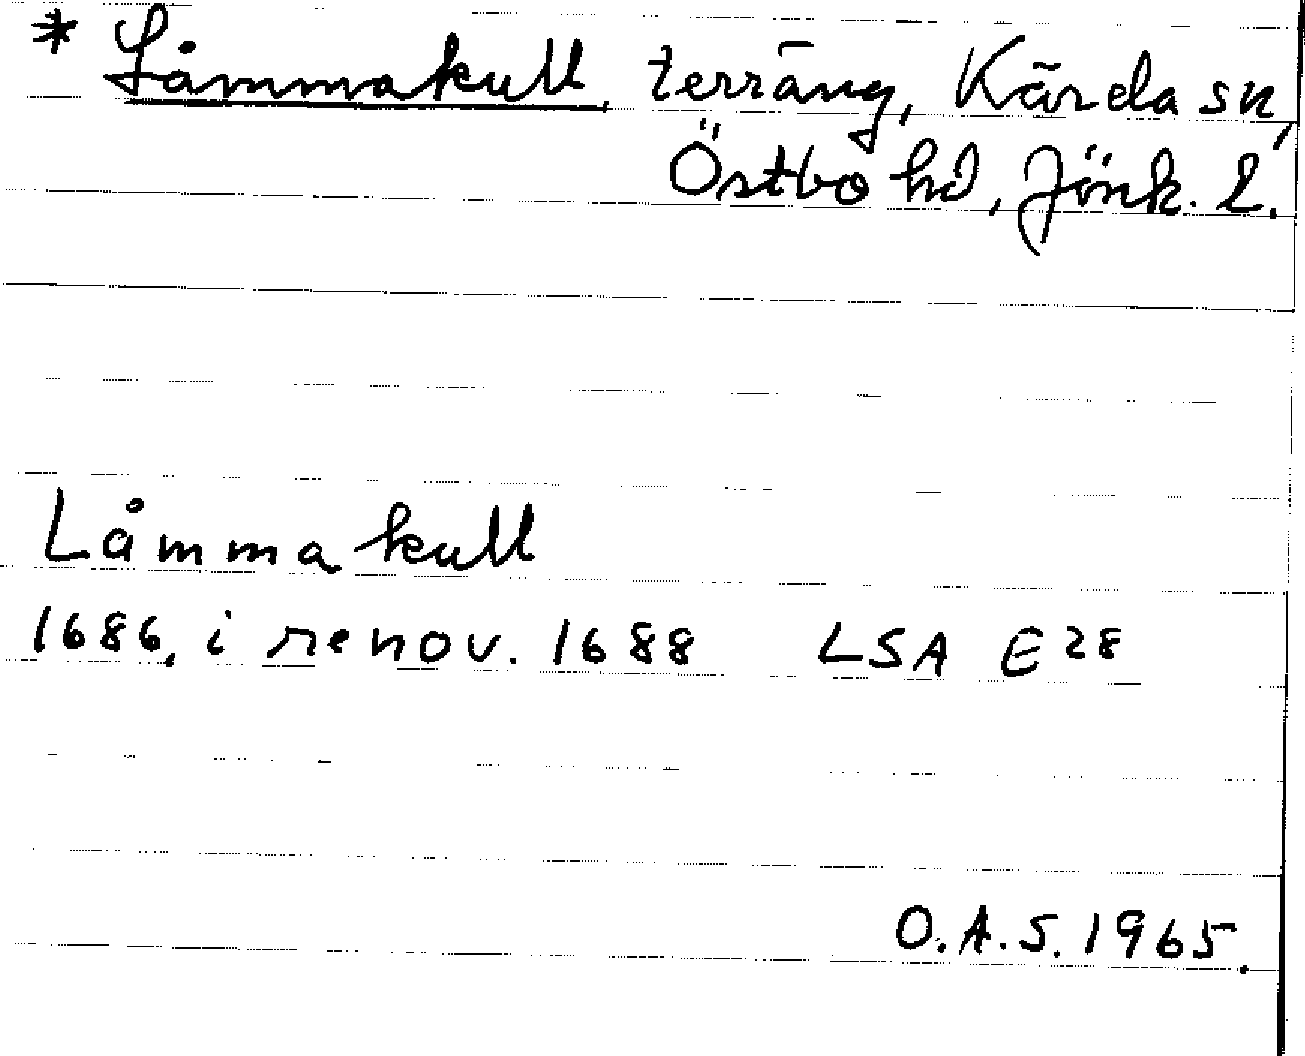 * Låmmakull, terräng, Kärda sn,
Östbo hd, Jönk. l.
Låmmakull
1686, i renov. 1688 LSA E 28
O.A.S. 1965.